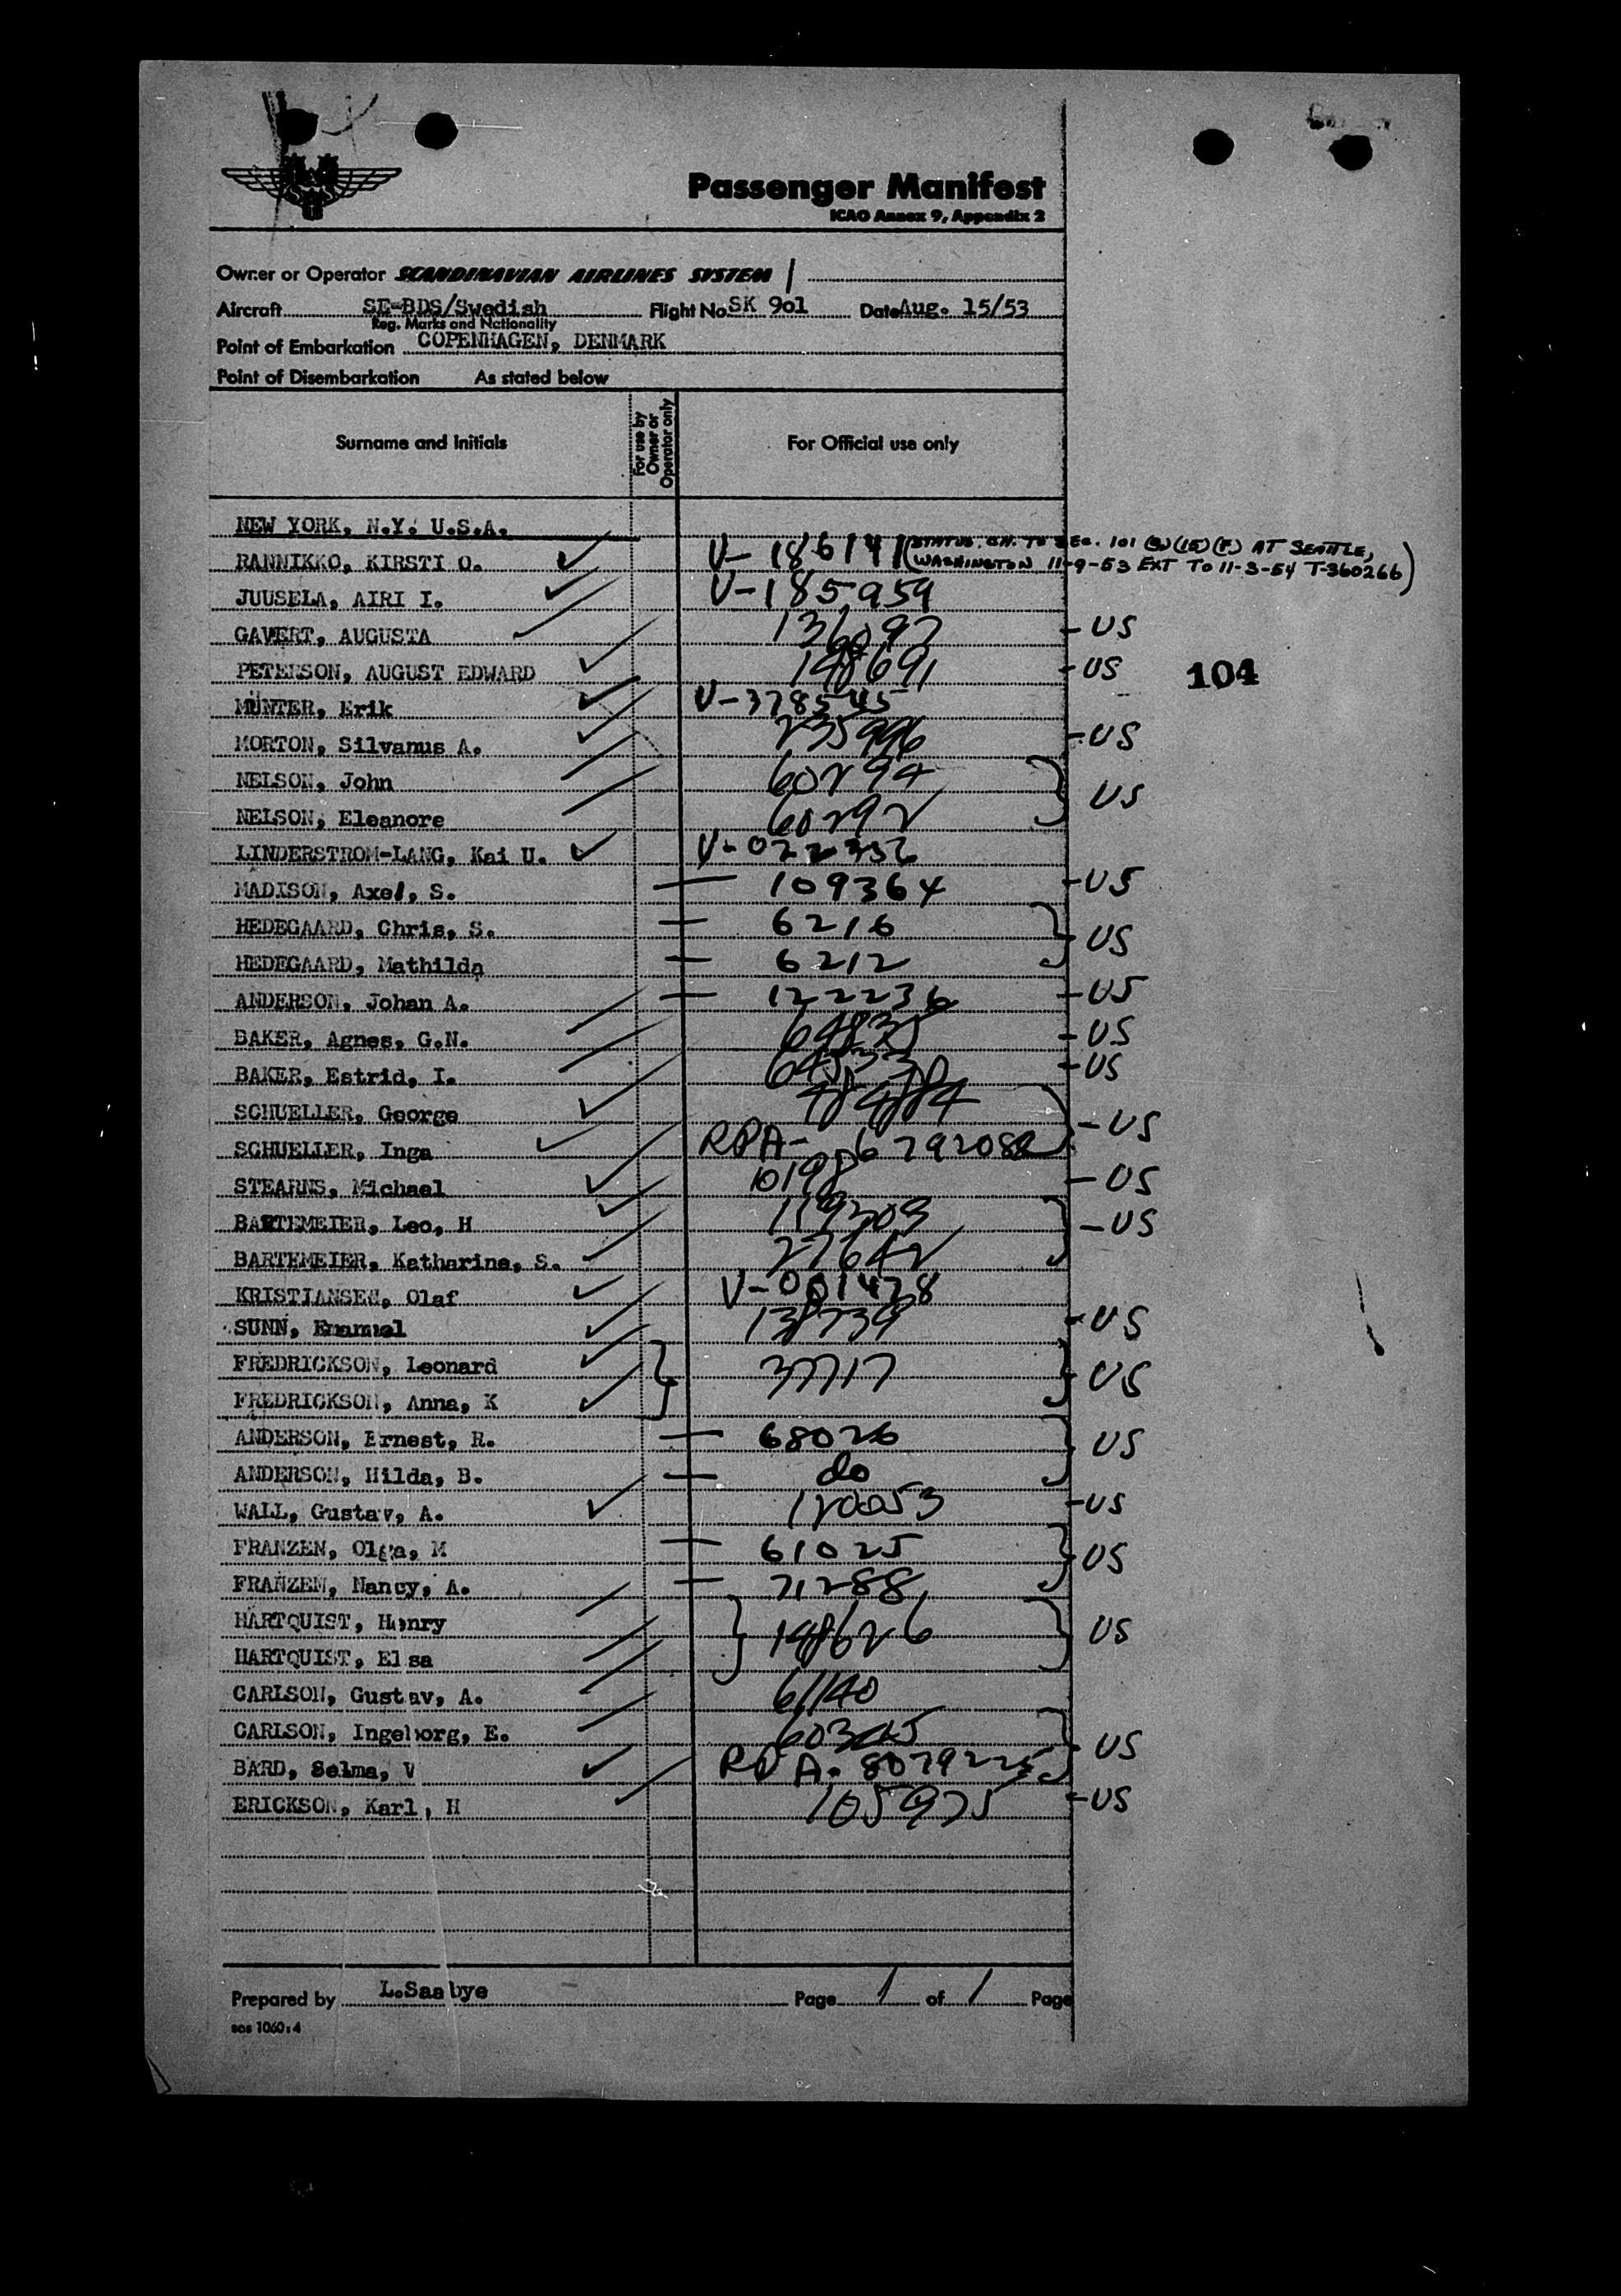 Passenger Manifest
ICAO Annex 9, Appendix 2
Owner or Operator SCANDINAVIAN AIRLINES SYSTEM
Aircraft SE-BDS/Swedish Flight No SK 901 Date Aug. 15/53
Reg. Marks and Nationality
Point of Embarkation COPENHAGEN, DENMARK
Point of Disembarkation As stated below
Surname and Initials For use by Owner or Operator only For Official use only
NEW YORK, N.Y. U.S.A.
RANNIKKO, KIRSTI O. V-186141 (STATUS CH. TO SEC. 101 (a)(15)(F) AT SEATTLE,
WASHINGTON 11-9-53 EXT TO 11-3-54 T-360266)
JUUSELA, AIRI I. V-185959
GAVERT, AUGUSTA 136097 -US
PETERSON, AUGUST EDWARD 148691 -US
104
MÜNTER, Erik V-378545
MORTON, Silvanus A. 235996 -US
NELSON, John 60294
US
NELSON, Eleanore 60292
LINDERSTROM-LANG, Kai U. V-022356
MADISON, Axel, S. 109364 -US
HEDEGAARD, Chris, S. 6216
US
HEDEGAARD, Mathilda 6212
ANDERSON, Johan A. 122236 -US
BAKER, Agnes, G.N. 64835 -US
BAKER, Estrid, I. -US
SCHUELLER, George
-US
SCHUELLER, Inga RPA-
STEARNS, Michael 10198 -US
BARTEMEIER, Leo, H 119309 -US
BARTEMEIER, Katharine, S. 27642
KRISTIANSEN, Olaf V-001428
SUNN, Emamuel 138739 -US
FREDRICKSON, Leonard 37717 US
FREDRICKSON, Anna, K
ANDERSON, Ernest, R. 68026 US
ANDERSON, Hilda, B. do
WALL, Gustav, A. 120053 -US
FRANZEN, Olga, M 61025 US
FRANZEN, Nancy, A. 71288
HARTQUIST, Henry 148626 US
HARTQUIST, Elsa
CARLSON, Gustav, A. 61140
CARLSON, Ingeborg, E. US
BARD, Selma, V RPA.
ERICKSON, Karl, H 105975 -US
Prepared by L.Saabye Page 1 of 1 Page
sas 1060:4